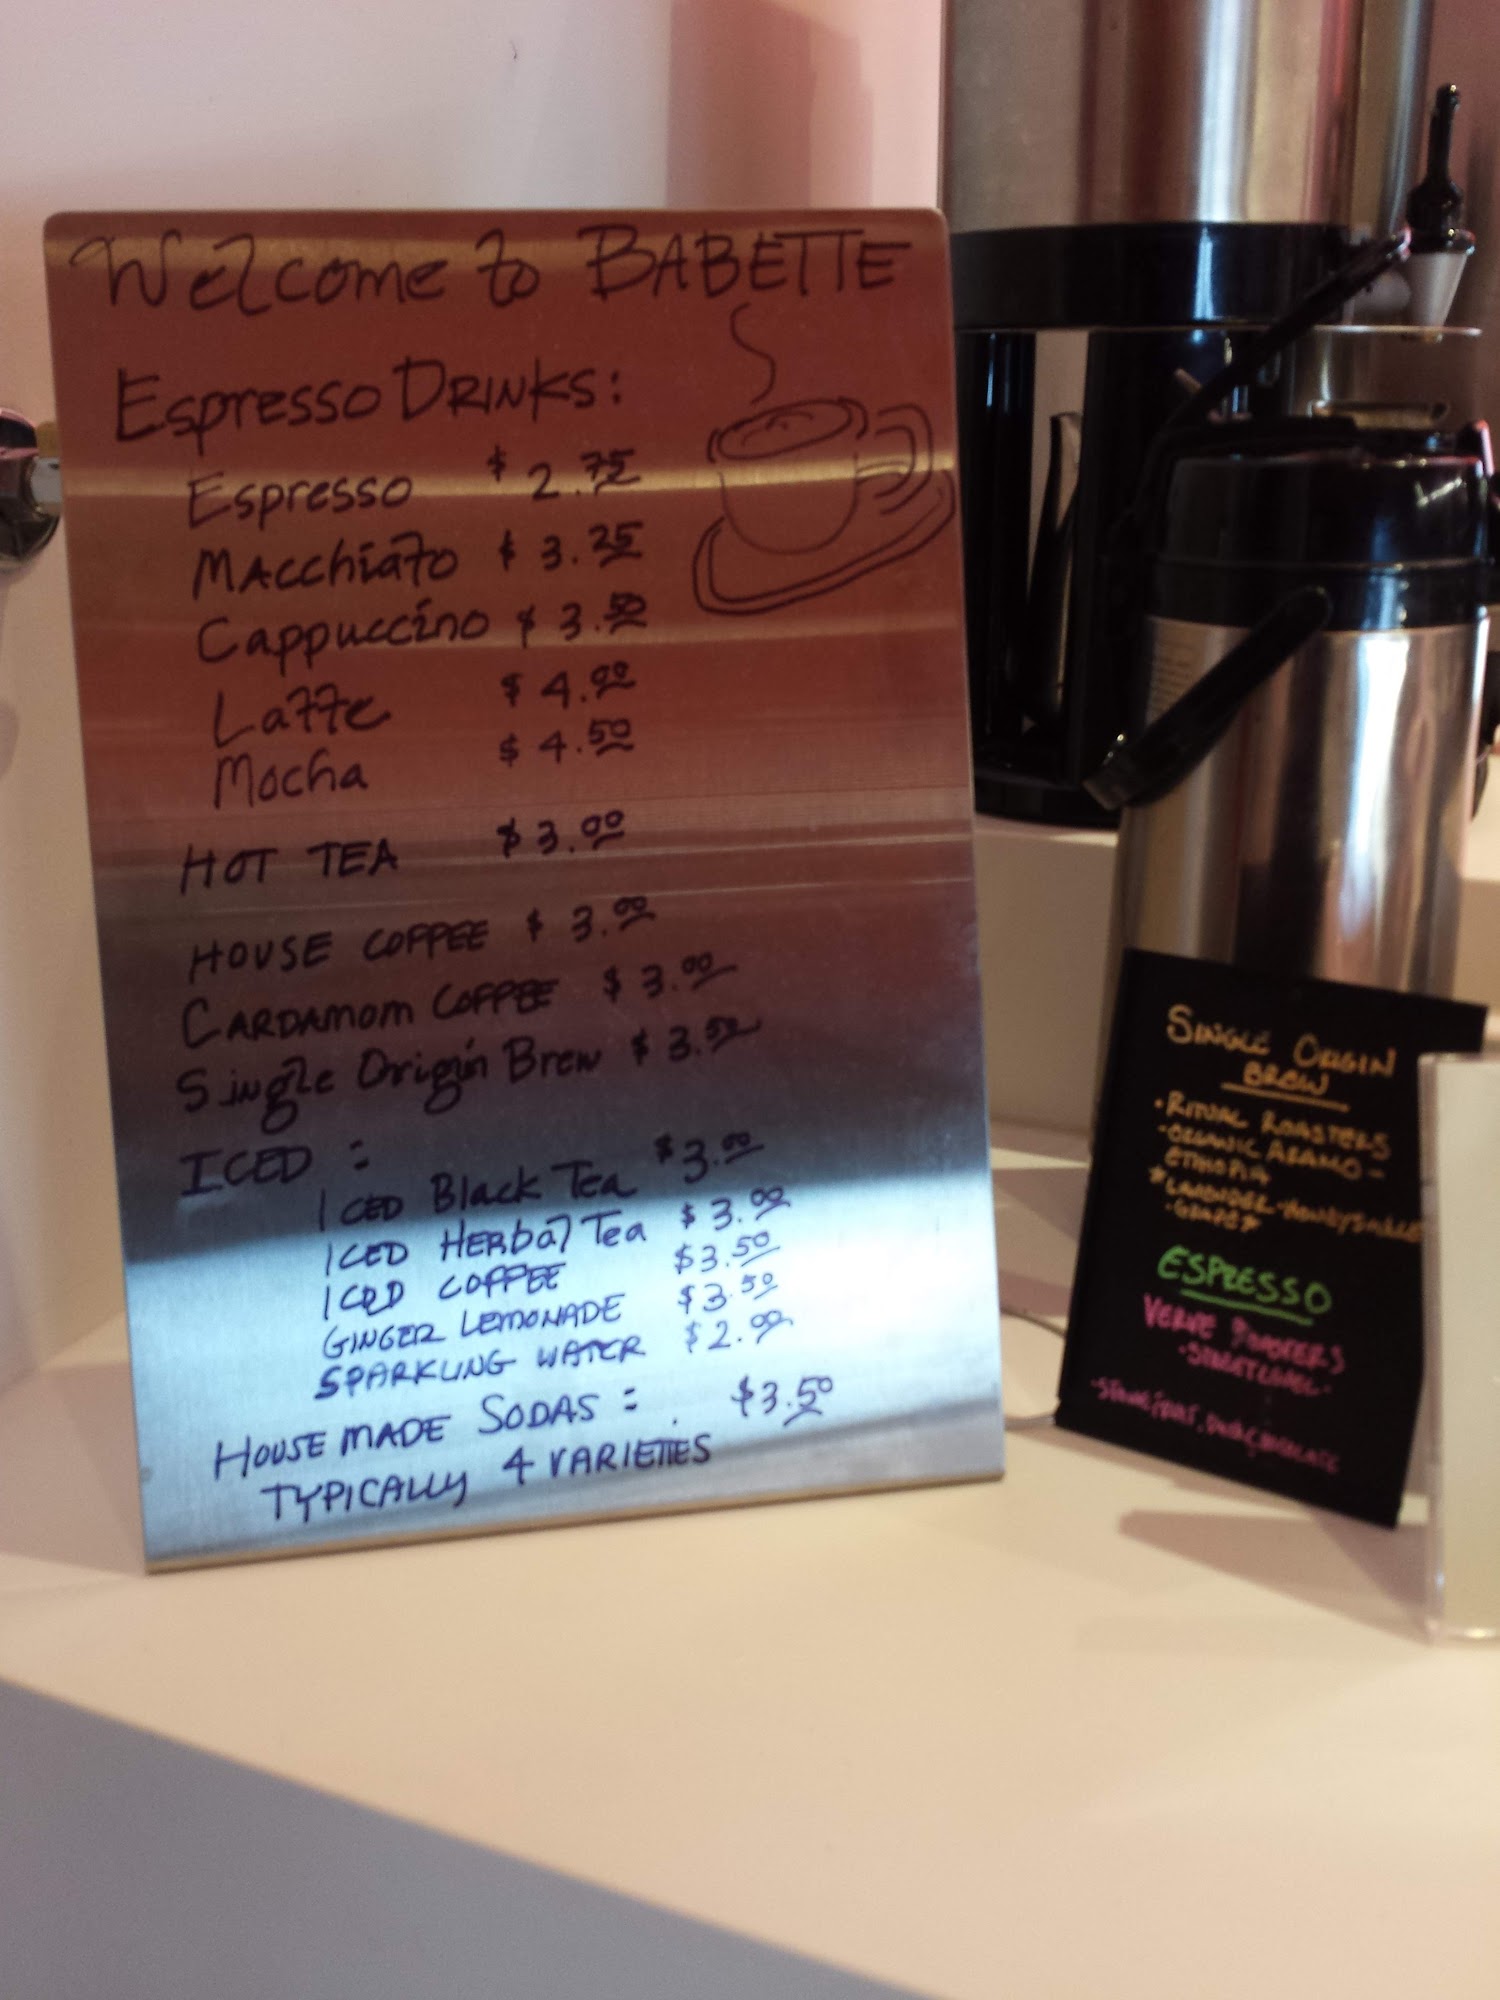 Welcome to BABETTE
Espresso DRINKS:
Espresso $2.75
MAcchiato $3.25
Cappuccino $3.50
Latte $4.00
Mocha $4.50
HOT TEA $3.00
HOUSE COFFEE $3.00
CARDAMOM COFFEE $3.00
Single Origin Brew $3.50
ICED:
ICED Black Tea $3.00
ICED HERbal Tea $3.00
ICED COFFEE $3.50
GINGER LEMONADE $3.50
SPARKLING WATER $2.00
HOUSEMADE SODAS: $3.50
TYPICALLY 4 VARIETIES
SINGLE ORIGIN
BREW
• RITUAL ROASTERS
-ORGANIC
ETHIOPIA
ESPRESSO
VERVE ROASTERS